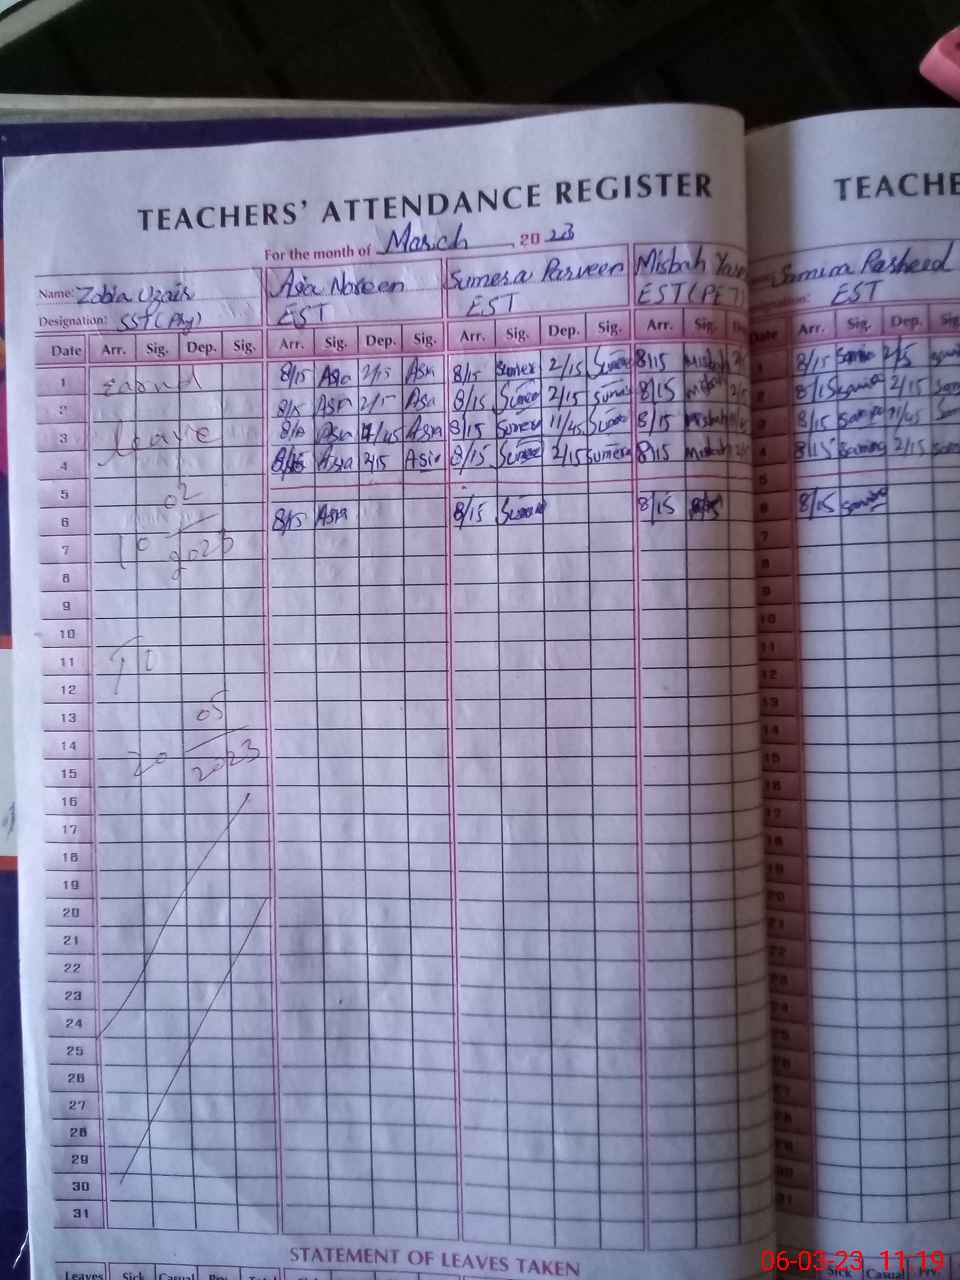 TEACHERS' ATTENDANCE REGISTER
TEACHE
For the month of March, 2023
Name: Zobia Uzair Asia Noreen Sumera Parveen Misbah Samina Rasheed
Designation: SST (Phy) EST EST EST (PET) EST
Date Arr. Sig. Dep. Sig. Arr. Sig. Dep. Sig. Arr. Sig. Dep. Sig. Arr. Sig. Date Arr. Sig. Dep. Sig
1 earnd 8/15 Asia 2/15 Asia 8/15 Sumera 2/15 Sumera 8/15 Misbah 1 8/15 2/15
2 8/15 Asia 2/15 Asia 8/15 Sumera 2/15 Sumera 8/15 Misbah 2 8/15 2/15
3 leave 8/15 Asia 11/45 Asia 8/15 Sumera 11/45 Sumera 8/15 Misbah 8/15 11/45
4 8/15 Asia 2/15 Asia 8/15 Sumera 2/15 Sumera 8/15 Misbah 4 8/15 2/15
5 02 5
6 8/15 Asia 8/15 Sumera 8/15 8/15
7 10 2023 7
8 8
9 9
10 10
11 To 11
12 12
13 05 13
14 14
15 20 2023 15
16 16
17 17
18 18
19 19
20 20
21 21
22 22
23 23
24 24
25 25
26 26
27 27
28 28
29 29
30 30
31 31
STATEMENT OF LEAVES TAKEN
Leaves Sick Casual Sick Casual
06-03-23 11:19